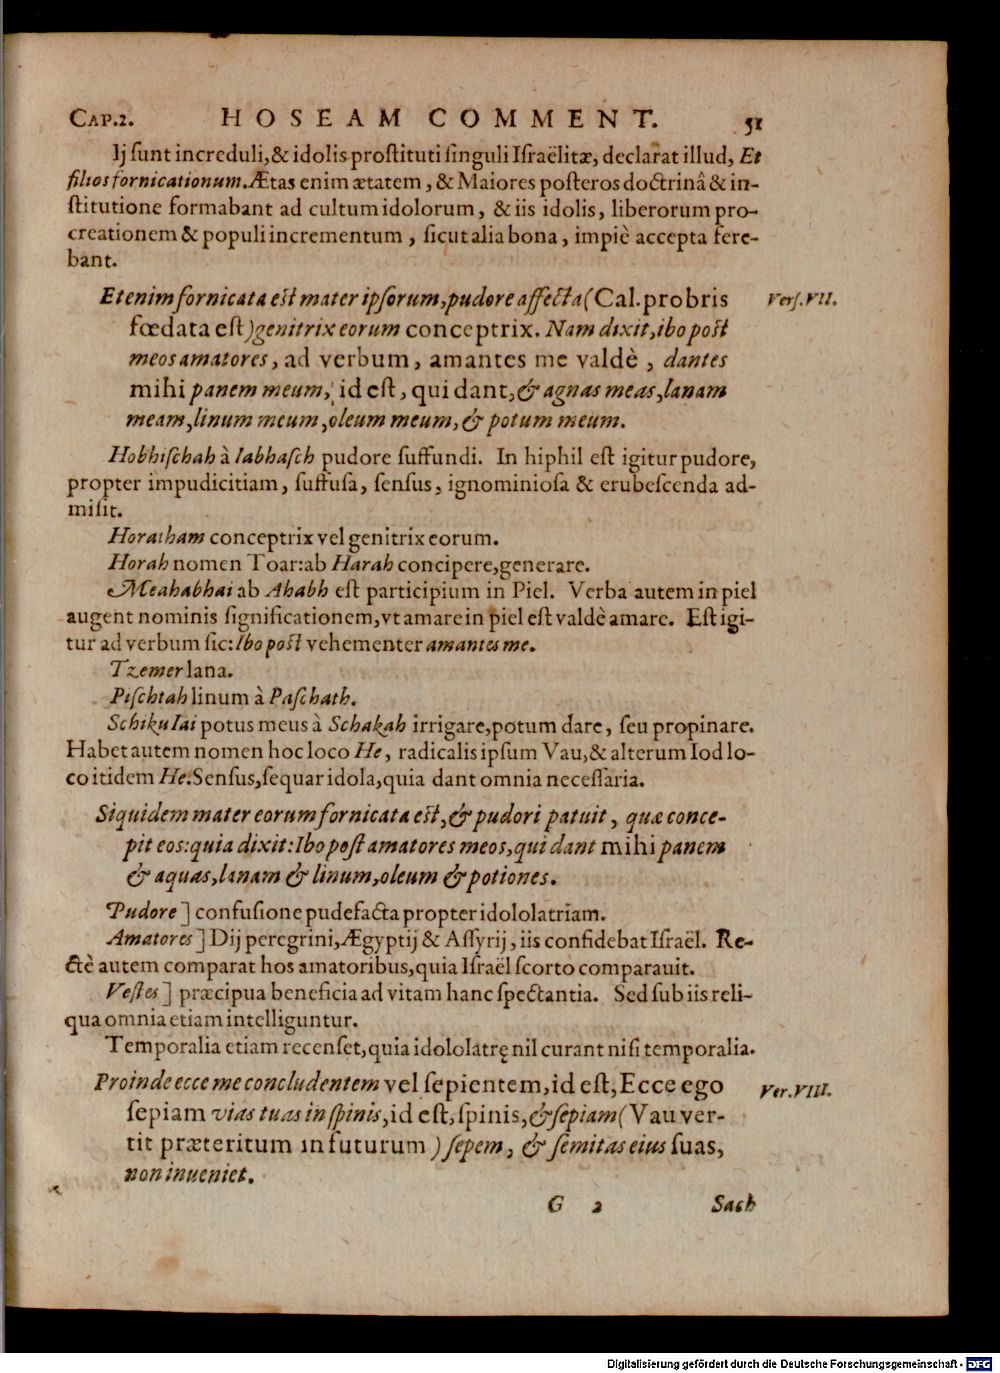 CAP.2. HOSEAM COMMENT. 51
Ij ſunt increduli,& idolis proſtituti ſinguli Iſraëlitæ, declarat illud, Et
filios fornicationum. Ætas enim ætatem, & Maiores poſteros doctrinâ & in-
ſtitutione formabant ad cultum idolorum, & iis idolis, liberorum pro-
creationem & populi incrementum, ſicut alia bona, impiè accepta fere-
bant.
Etenim fornicata eſt mater ipſorum, pudore affecta (Cal. probris
Verſ. VII.
fœdata eſt) genitrix eorum conceptrix. Nam dixit, ibo poſt
meos amatores, ad verbum, amantes me valdè, dantes
mihi panem meum, id eſt, qui dant, & agnas meas, lanam
meam, linum meum, oleum meum, & potum meum.
Hobhiſchah à Iabhaſch pudore ſuffundi. In hiphil eſt igitur pudore,
propter impudicitiam, ſuffuſa, ſenſus, ignominioſa & erubeſcenda ad-
miſit.
Horatham conceptrix vel genitrix eorum.
Horah nomen Toar: ab Harah concipere, generare.
Meahabhai ab Ahabh eſt participium in Piel. Verba autem in piel
augent nominis ſignificationem, vt amare in piel eſt valdè amare. Eſt igi-
tur ad verbum ſic: Ibo poſt vehementer amantes me.
Tzemer lana.
Piſchtah linum à Paſchath.
Schikulai potus meus à Schakah irrigare, potum dare, ſeu propinare.
Habet autem nomen hoc loco He, radicalis ipſum Vau, & alterum Iod lo-
co itidem He. Senſus, ſequar idola, quia dant omnia neceſſaria.
Siquidem mater eorum fornicata eſt, & pudori patuit, quæ conce-
pit eos: quia dixit: Ibo poſt amatores meos, qui dant mihi panem
& aquas, lanam & linum, oleum & potiones.
Pudore] confuſione pudefacta propter idololatriam.
Amatores] Dij peregrini, Ægyptij & Aſſyrij, iis confidebat Iſraël. Re-
ctè autem comparat hos amatoribus, quia Iſraël ſcorto comparauit.
Veſtes] præcipua beneficia ad vitam hanc ſpectantia. Sed ſub iis reli-
qua omnia etiam intelliguntur.
Temporalia etiam recenſet, quia idololatrę nil curant niſi temporalia.
Proinde ecce me concludentem vel ſepientem, id eſt, Ecce ego
Ver. VIII.
ſepiam vias tuas in ſpinis, id eſt, ſpinis, & ſepiam (Vau ver-
tit præteritum in futurum) ſepem, & ſemitas eius ſuas,
non inueniet.
G 2 Sach
Digitalisierung gefördert durch die Deutsche Forschungsgemeinschaft - DFG